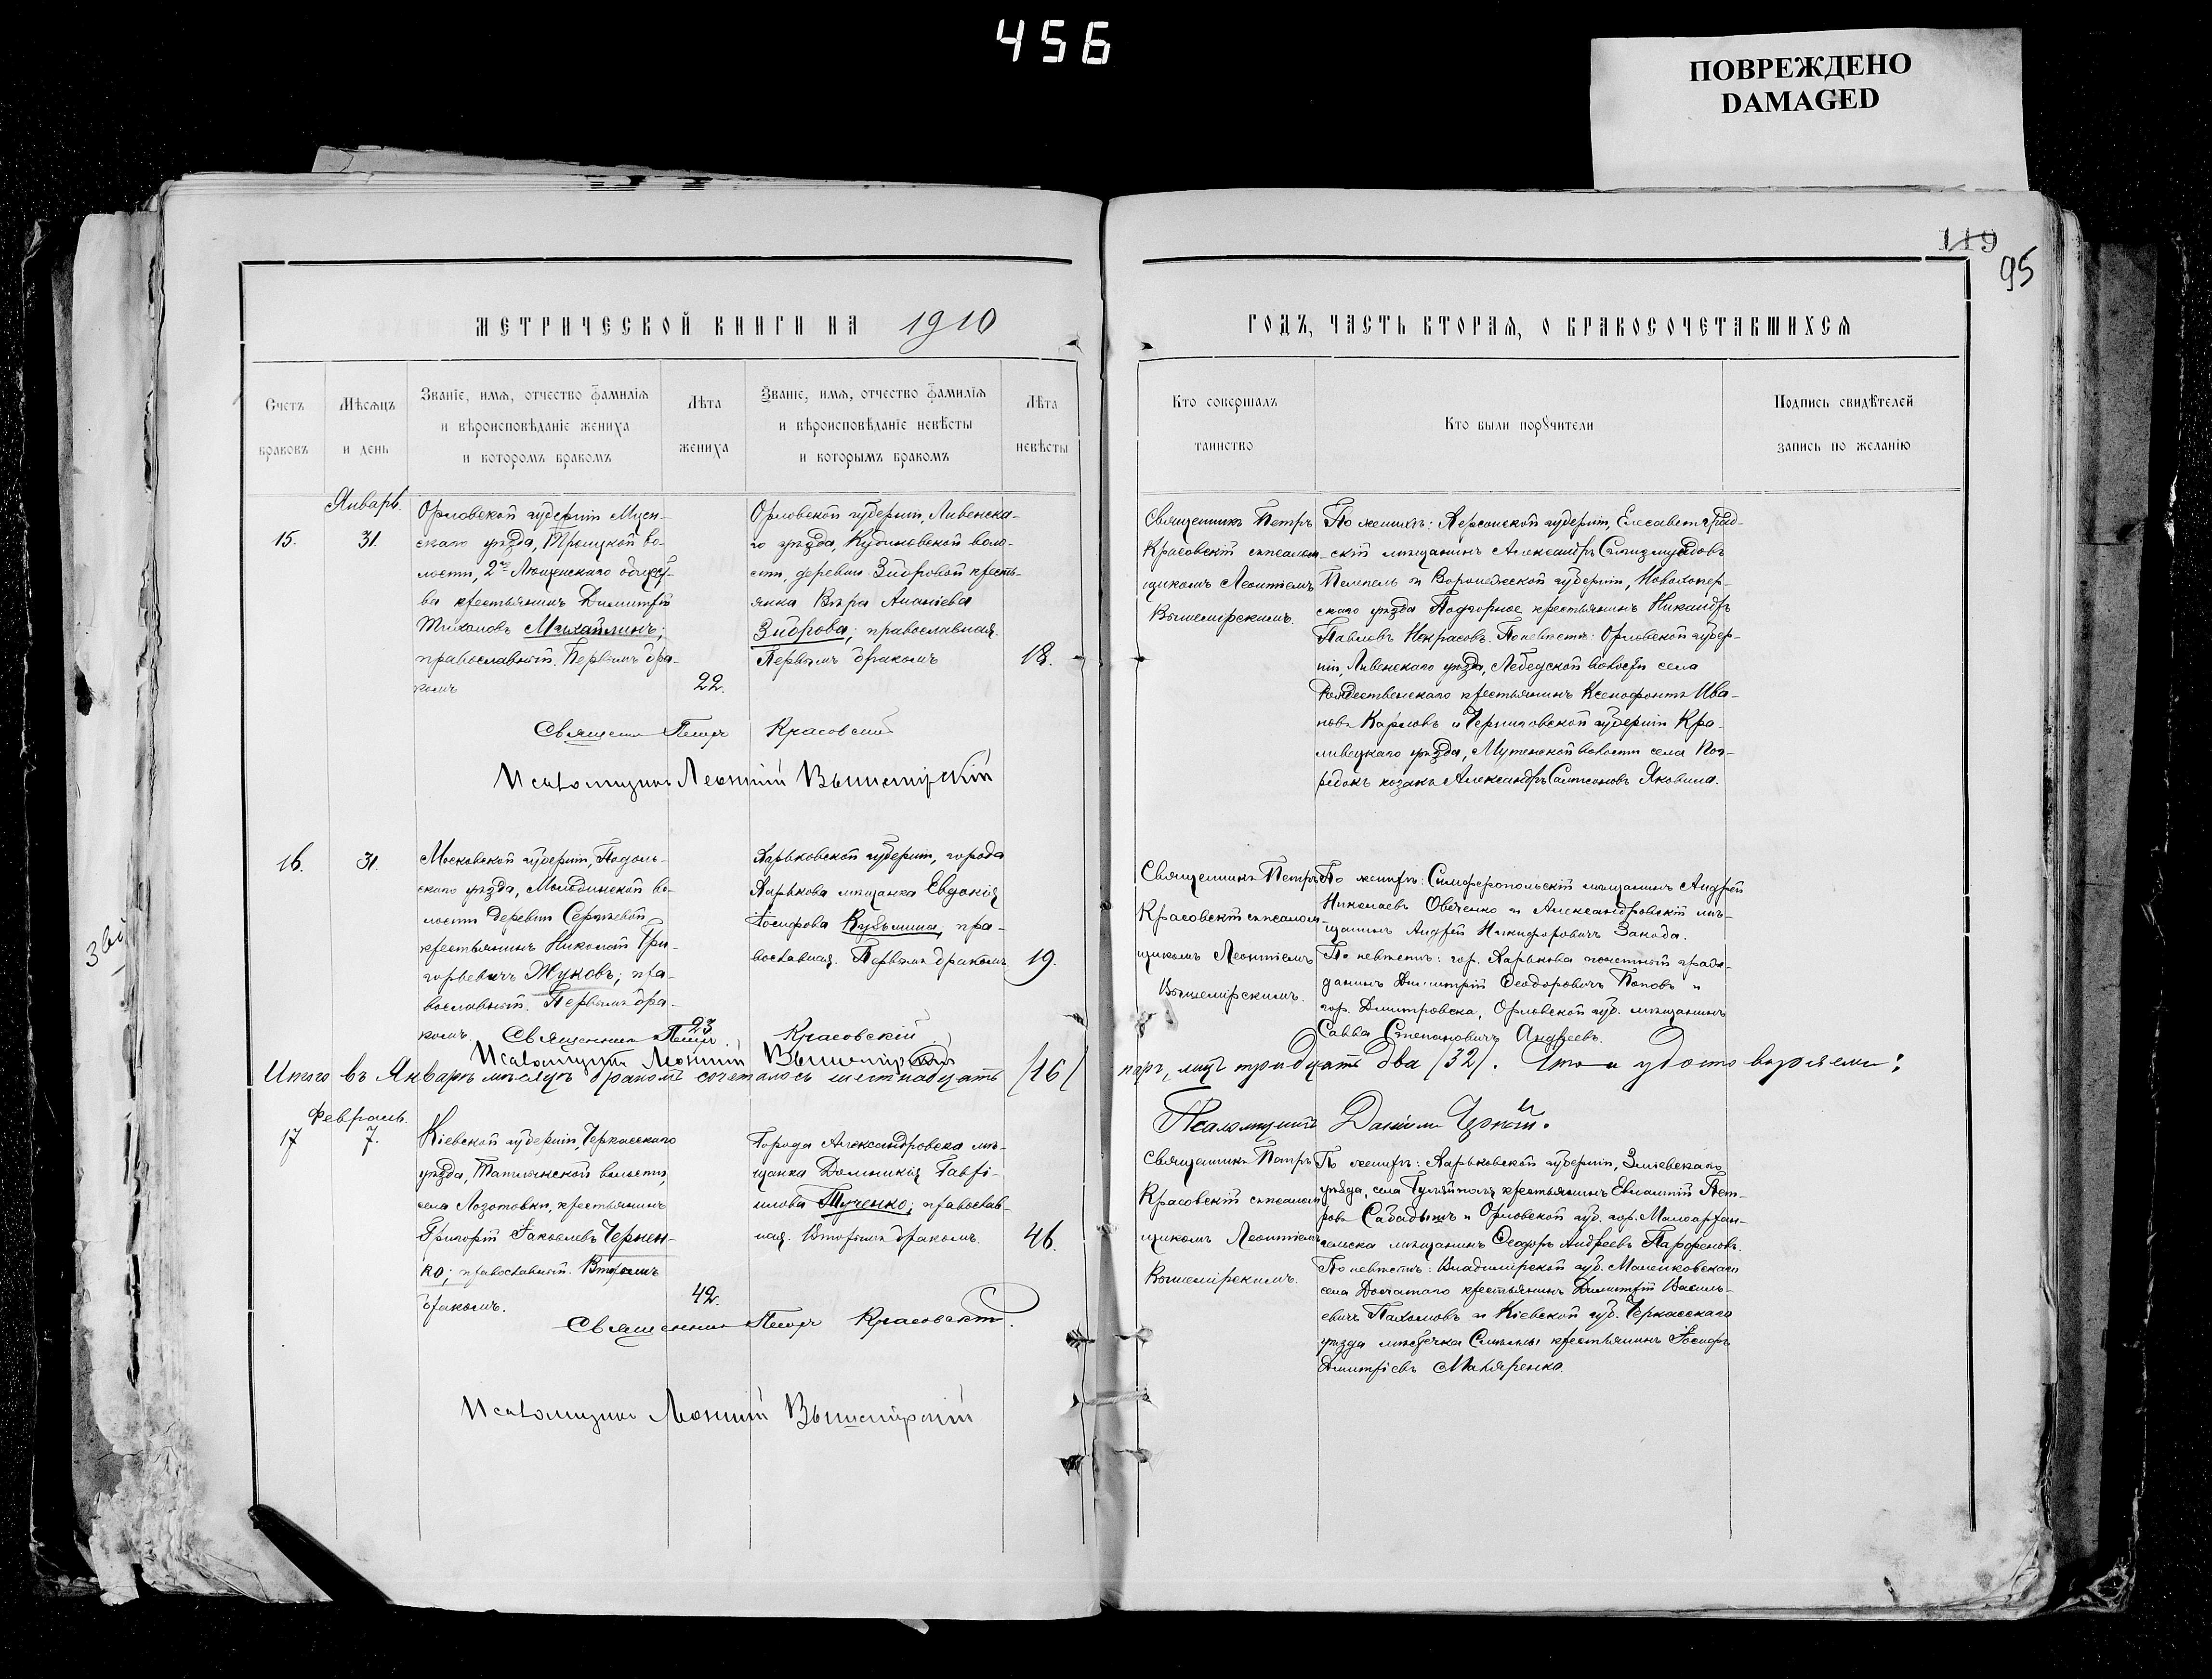 456
ПОВРЕЖДЕНО
DAMAGED
119
95
МЕТРИЧЕСКОЙ КНИГИ НА 1910
ГОДЪ, ЧАСТЬ ВТОРАЯ, О БРАКОСОЧЕТАВШИХСЯ
Счетъ
браковъ
Мѣсяцъ
и день
Званіе, имя, отчество фамилія
и вѣроисповѣданіе жениха
и которомъ бракомъ
Лѣта
жениха
Званіе, имя, отчество фамилія
и вѣроисповѣданіе невѣсты
и которымъ бракомъ
Лѣта
невѣсты
Кто совершалъ
таинство
Кто были поручители
Подпись свидѣтелей
запись по желанію
15.
Январь.
31.
Орловской губерніи Мцен-
скаго уѣзда, во-
лости, 2го общест-
ва крестьянинъ Димитрій
Тихоновъ Михайлинъ;
православный. Первымъ бра-
комъ
22.
Орловской губерніи, Ливенска-
го уѣзда, воло-
сти, деревни Зиборовой кресть-
янка Вѣра Ананіева
Зиброва; православная.
Первымъ бракомъ
18.
Священникъ Петръ
Красовскій съ псалом-
щикомъ Леонтіемъ
Вышемірскимъ.
По женихѣ: Херсонской губерніи, Елисаветград-
скій мѣщанинъ Александръ
и Воронежской губерніи, Новохопер-
скаго уѣзда Подгорное крестьянинъ Никандръ
Павловъ Некрасовъ. По невѣстѣ: Орловской губер-
ніи, Ливенскаго уѣзда, волости села
Рождественскаго крестьянинъ Ксенофонтъ Ива-
новъ Карловъ и Черниговской губерніи Кро-
левецкаго уѣзда, Мутенской волости села
козакъ Александръ Самсоновъ
Священникъ Петръ Красовскій
Псаломщикъ Леонтій Вышемірскій
16.
31.
Московской губерніи, Подоль-
скаго уѣзда, Молодинской во-
лости деревни Сергѣевой
крестьянинъ Николай Гри-
горьевичъ Жуковъ; пра-
вославный. Первымъ бра-
комъ.
23.
Харьковской губерніи, города
Харькова мѣщанка Евдокія
Іосифова Кузьмина, пра-
вославная. Первымъ бракомъ
19.
Священникъ Петръ
Красовскій съ псалом-
щикомъ Леонтіемъ
Вышемірскимъ.
По женихѣ: Симферопольскій мѣщанинъ Андрей
Николаевъ Овченко и Александровскій мѣ-
щанинъ Андрей Никифоровичъ Закода.
По невѣстѣ: гор. Харькова почетный граж-
данинъ Димитрій Ѳеодоровичъ Поповъ и
гор. Дмитровска, Орловской губ. мѣщанинъ
Савва Степановичъ Андреевъ.
Священникъ Петръ Красовскій
Псаломщикъ Леонтій Вышемірскій
Итого въ Январѣ мѣсяцѣ бракомъ сочеталось шестнадцать /16/ паръ, лицъ тридцать два /32/. Что и удостовѣряемъ:
Псаломщикъ Даніилъ Черный.
Февраль.
17
7.
Кіевской губерніи, Черкасскаго
уѣзда, волости,
села крестьянинъ
Григорій Іаковлевъ Чернен-
ко; православный. Вторымъ
бракомъ.
42.
Города Александровска мѣ-
щанка Домникія Гаврі-
илова Тученко; православ-
ная. Вторымъ бракомъ.
46.
Священникъ Петръ
Красовскій съ псалом-
щикомъ Леонтіемъ
Вышемірскимъ.
По женихѣ: Харьковской губерніи, Зміевскаго
уѣзда, села крестьянинъ Евлампій Пет-
ровъ и Орловской губ. гор. Малоархан-
гельска мѣщанинъ Ѳеодоръ Андреевъ Парфеновъ.
По невѣстѣ: Владимірской губ. Меленковскаго
села Досчатаго крестьянинъ Димитрій Василь-
евичъ Пахомовъ и Кіевской губ. Черкасскаго
уѣзда мѣстечка Смѣлы крестьянинъ Іосифъ
Дмитріевъ Маляренко.
Священникъ Петръ Красовскій.
Псаломщикъ Леонтій Вышемірскій